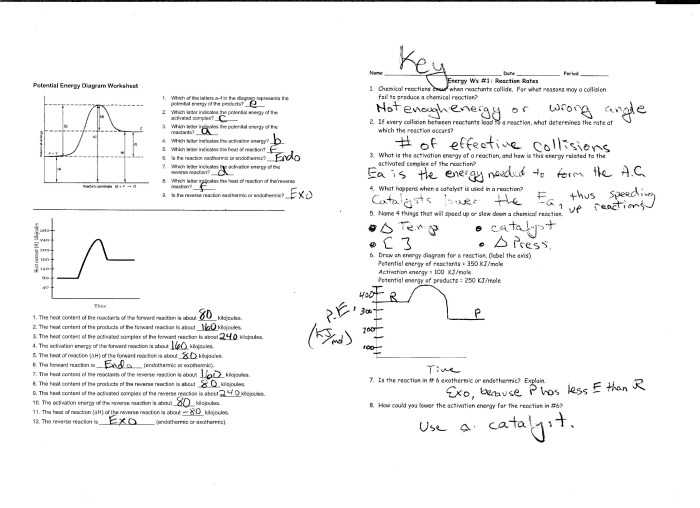 Potential Energy Diagram Worksheet
1. Which of the letters a–f in the diagram represents the
potential energy of the products? e
2. Which letter indicates the potential energy of the
activated complex? c
3. Which letter indicates the potential energy of the
reactants? a
4. Which letter indicates the activation energy? b
5. Which letter indicates the heat of reaction? f
6. Is the reaction exothermic or endothermic? Endo
7. Which letter indicates the activation energy of the
reverse reaction? d
8. Which letter indicates the heat of the reverse
reaction? f
9. Is the reverse reaction exothermic or endothermic? Exo
Heat content (H) kilojoules
80
40
Time
1. The heat content of the reactants of the forward reaction is about 80 kilojoules.
2. The heat content of the products of the forward reaction is about 160 kilojoules.
3. The heat content of the activated complex of the forward reaction is about 240 kilojoules.
4. The activation energy of the forward reaction is about 160 kilojoules.
5. The heat of reaction (ΔH) of the forward reaction is about 80 kilojoules.
6. The forward reaction is Endo (endothermic or exothermic).
7. The heat content of the reactants of the reverse reaction is about 160 kilojoules.
8. The heat content of the products of the reverse reaction is about 80 kilojoules.
9. The heat content of the activated complex of the reverse reaction is about 240 kilojoules.
10. The activation energy of the reverse reaction is about 80 kilojoules.
11. The heat of reaction (ΔH) of the reverse reaction is about -80 kilojoules.
12. The reverse reaction is EXO (endothermic or exothermic).
Key
Name Date Period
Energy Ws #1: Reaction Rates
1. Chemical reactions occur when reactants collide. For what reasons may a collision
fail to produce a chemical reaction?
Not enough energy or wrong angle
2. If every collision between reactants lead to a reaction, what determines the rate at
which the reaction occurs?
# of effective collisions
3. What is the activation energy of a reaction, and how is this energy related to the
activated complex of the reaction?
Ea is the energy needed to form the A.C.
4. What happens when a catalyst is used in a reaction?
Catalysts lower the Ea, thus speeding
up reactions
5. Name 4 things that will speed up or slow down a chemical reaction.
Δ Temp catalyst
[ ] Δ Press.
6. Draw an energy diagram for a reaction. (label the axis)
Potential energy of reactants = 350 KJ/mole
Activation energy = 100 KJ/mole
Potential energy of products = 250 KJ/mole
P.E. (KJ/mol)
400 R
300 P
200
100
Time
7. Is the reaction in # 6 exothermic or endothermic? Explain.
Exo, because P has less E than R
8. How could you lower the activation energy for the reaction in #6?
Use a catalyst.